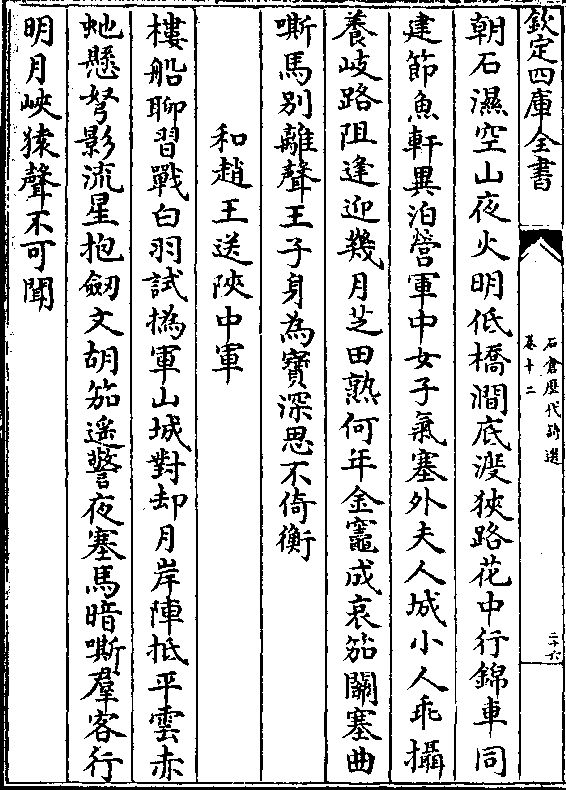 欽定四庫全書
石倉歷代詩選
卷十二
二十六
朝石濕空山夜火明低橋澗底渡狹路花中行錦車同
建節魚軒異泊營軍中女子氣塞外夫人城小人乖攝
養岐路阻逢迎幾月芝田熟何年金竈成哀笳關塞曲
嘶馬別離聲王子身為寶深思不倚衡
和趙王送陜中軍
樓船聊習戰白羽試撝軍山城對却月岸陣抵平雲赤
虵懸弩影流星抱劒文胡笳遥警夜塞馬暗嘶羣客行
明月峽猿聲不可聞